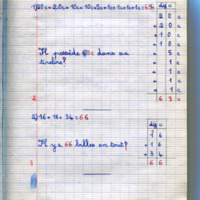 1) 20c + 20c + 10c + 10c + 5c + 1c + 1c + 1c + 1c = 69
d u
2 0 c
+ 2 0 c
+ 1 0 c
+ 1 0 c
+ 5 c
+ 1 c
+ 1 c
+ 1 c
+ 1 c
6 9 c
Il possède c dans sa
tirelire?
2) 16 + 16 + 34 = 66
d u
1 6
+ 1 6
+ 3 4
6 6
Il y a 66 billes en tout?